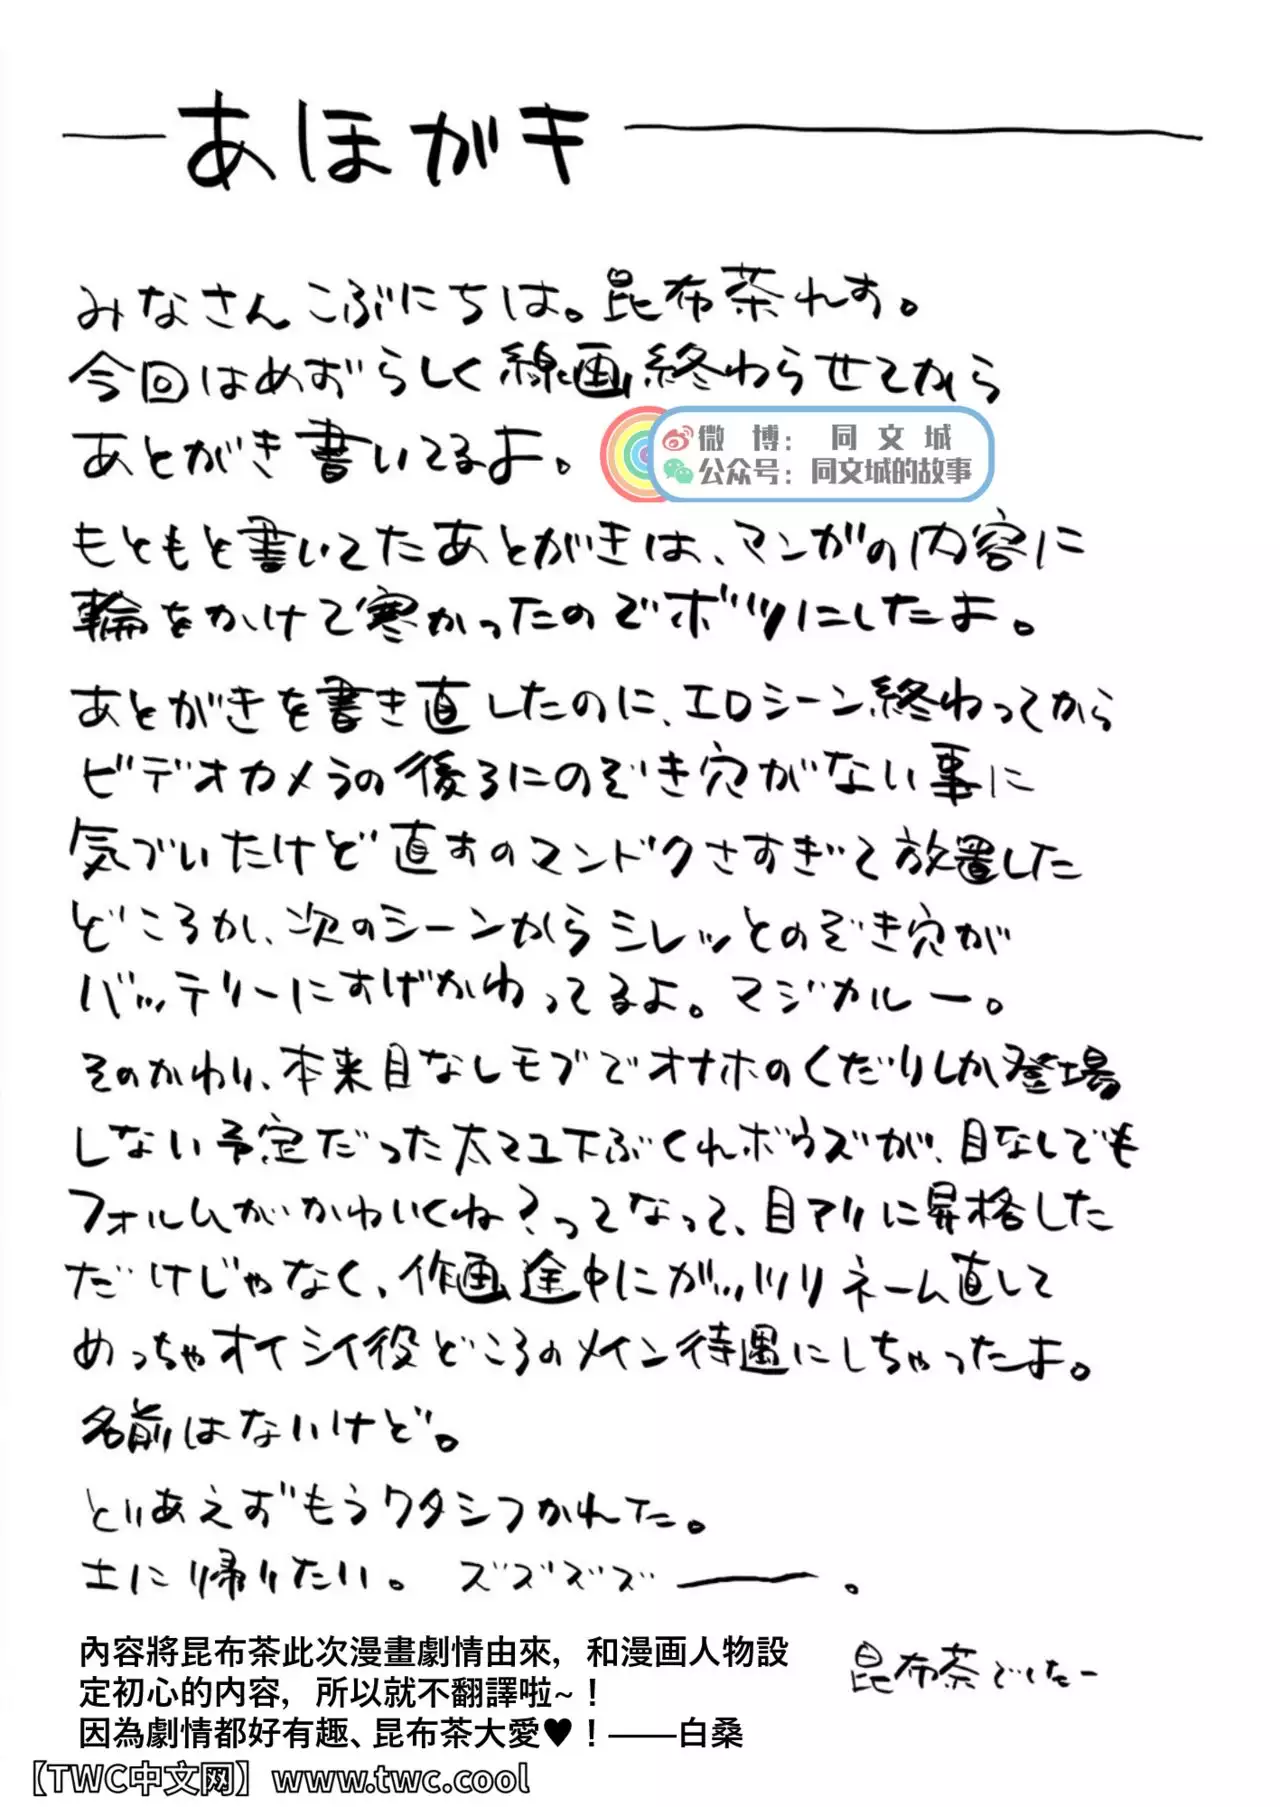 あほがキ
みなさんこぶにちは。昆布茶れす。
今回はめずらしく線画終わらせてから
あとがき書いてるよ。
微博：同文城
公众号：同文城的故事
もともと書いてたあとがきは、マンガの内容に
輪をかけて寒かったのでボツにしたよ。
あとがきを書き直したのに、エロシーン終わってから
ビデオカメラの後ろにのぞき穴がない事に
気づいたけど直すのマンドクさすぎて放置した
どころか、次のシーンからシレッとのぞき穴が
バッテリーにすげかわってるよ。マジカルー。
そのかわり、本来目なしモブでオナホのくだりしか登場
しない予定だった太マユ下ぶくれボウズが、目なしでも
フォルムがかわいくね？ってなって、目アリに昇格した
だけじゃなく、作画途中にガッツリネーム直して
めっちゃオイシイ役どころのメイン待遇にしちゃったよ。
名前はないけど。
とりあえずもうワタシつかれた。
土に帰りたい。ズズズズ——。
昆布茶でしたー
內容將昆布茶此次漫畫劇情由來，和漫画人物設
定初心的內容，所以就不翻譯啦~！
因為劇情都好有趣、昆布茶大愛♥！——白桑
【TWC中文网】www.twc.cool